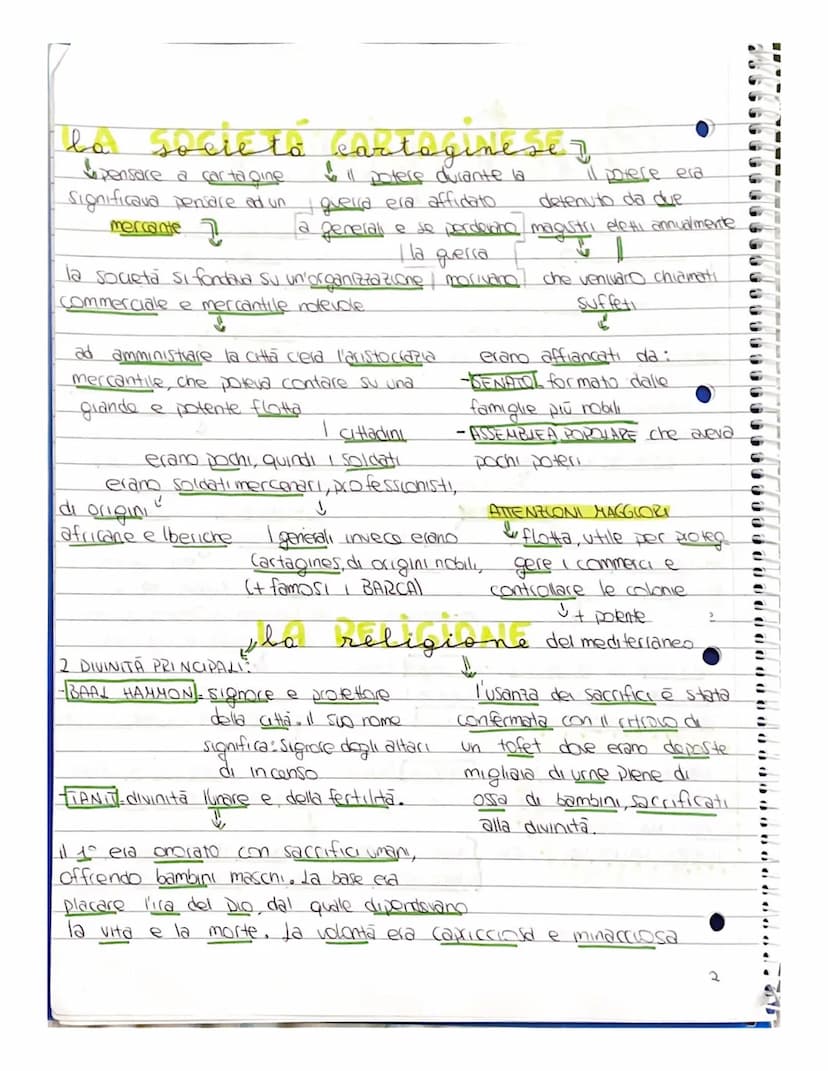 la SOCIETÁ CARTAGINESE
pensare a cartagine
significava pensare ad un
mercante
la società si fondava su un'organizzazione
commerciale e mercantile notevole
ad amministrare la città c'era l'aristocrazia
mercantile, che poteva contare su una
grande e potente flotta
il potere durante la
guerra era affidato
a generali e se perdevano
la guerra
morivano
il potere era
detenuto da due
magistri eletti annualmente
che venivaro chiamati
suffeti
erano affiancati da:
-SENATO formato dalle
famiglie più nobili
- ASSEMBLEA POPOLARE che aveva
pochi poteri
I cittadini
erano pochi, quindi i soldati
erano soldati mercenari, professionisti,
di origini
africane e Iberiche
I generali invece erano
Cartagines, di origini nobili,
(+ famosi i BARCA)
ATTENZIONI MAGGIORI
flotta, utile per proteg
gere i commerci e
controllare le colonie
+ potente
del mediterraneo
la RELIGIONE
2 DIVINITÀ PRINCIPALI:
-BAAL HAMMON- signore e protettore
della città. il suo nome
significa: signore degli altari
di incenso
-TANIT- divinità lunare e della fertilità.
il 1° era onorato con sacrifici umani,
offrendo bambini maschi. La base era
placare l'ira del Dio, dal quale dipendevano
la vita e la morte. La volontà era capricciosa e minacciosa
l'usanza dei sacrifici è stata
confermata con il ritrovo di
un tofet dove erano deposte
migliaia di urne piene di
ossa di bambini, sacrificati
alla divinità.
2